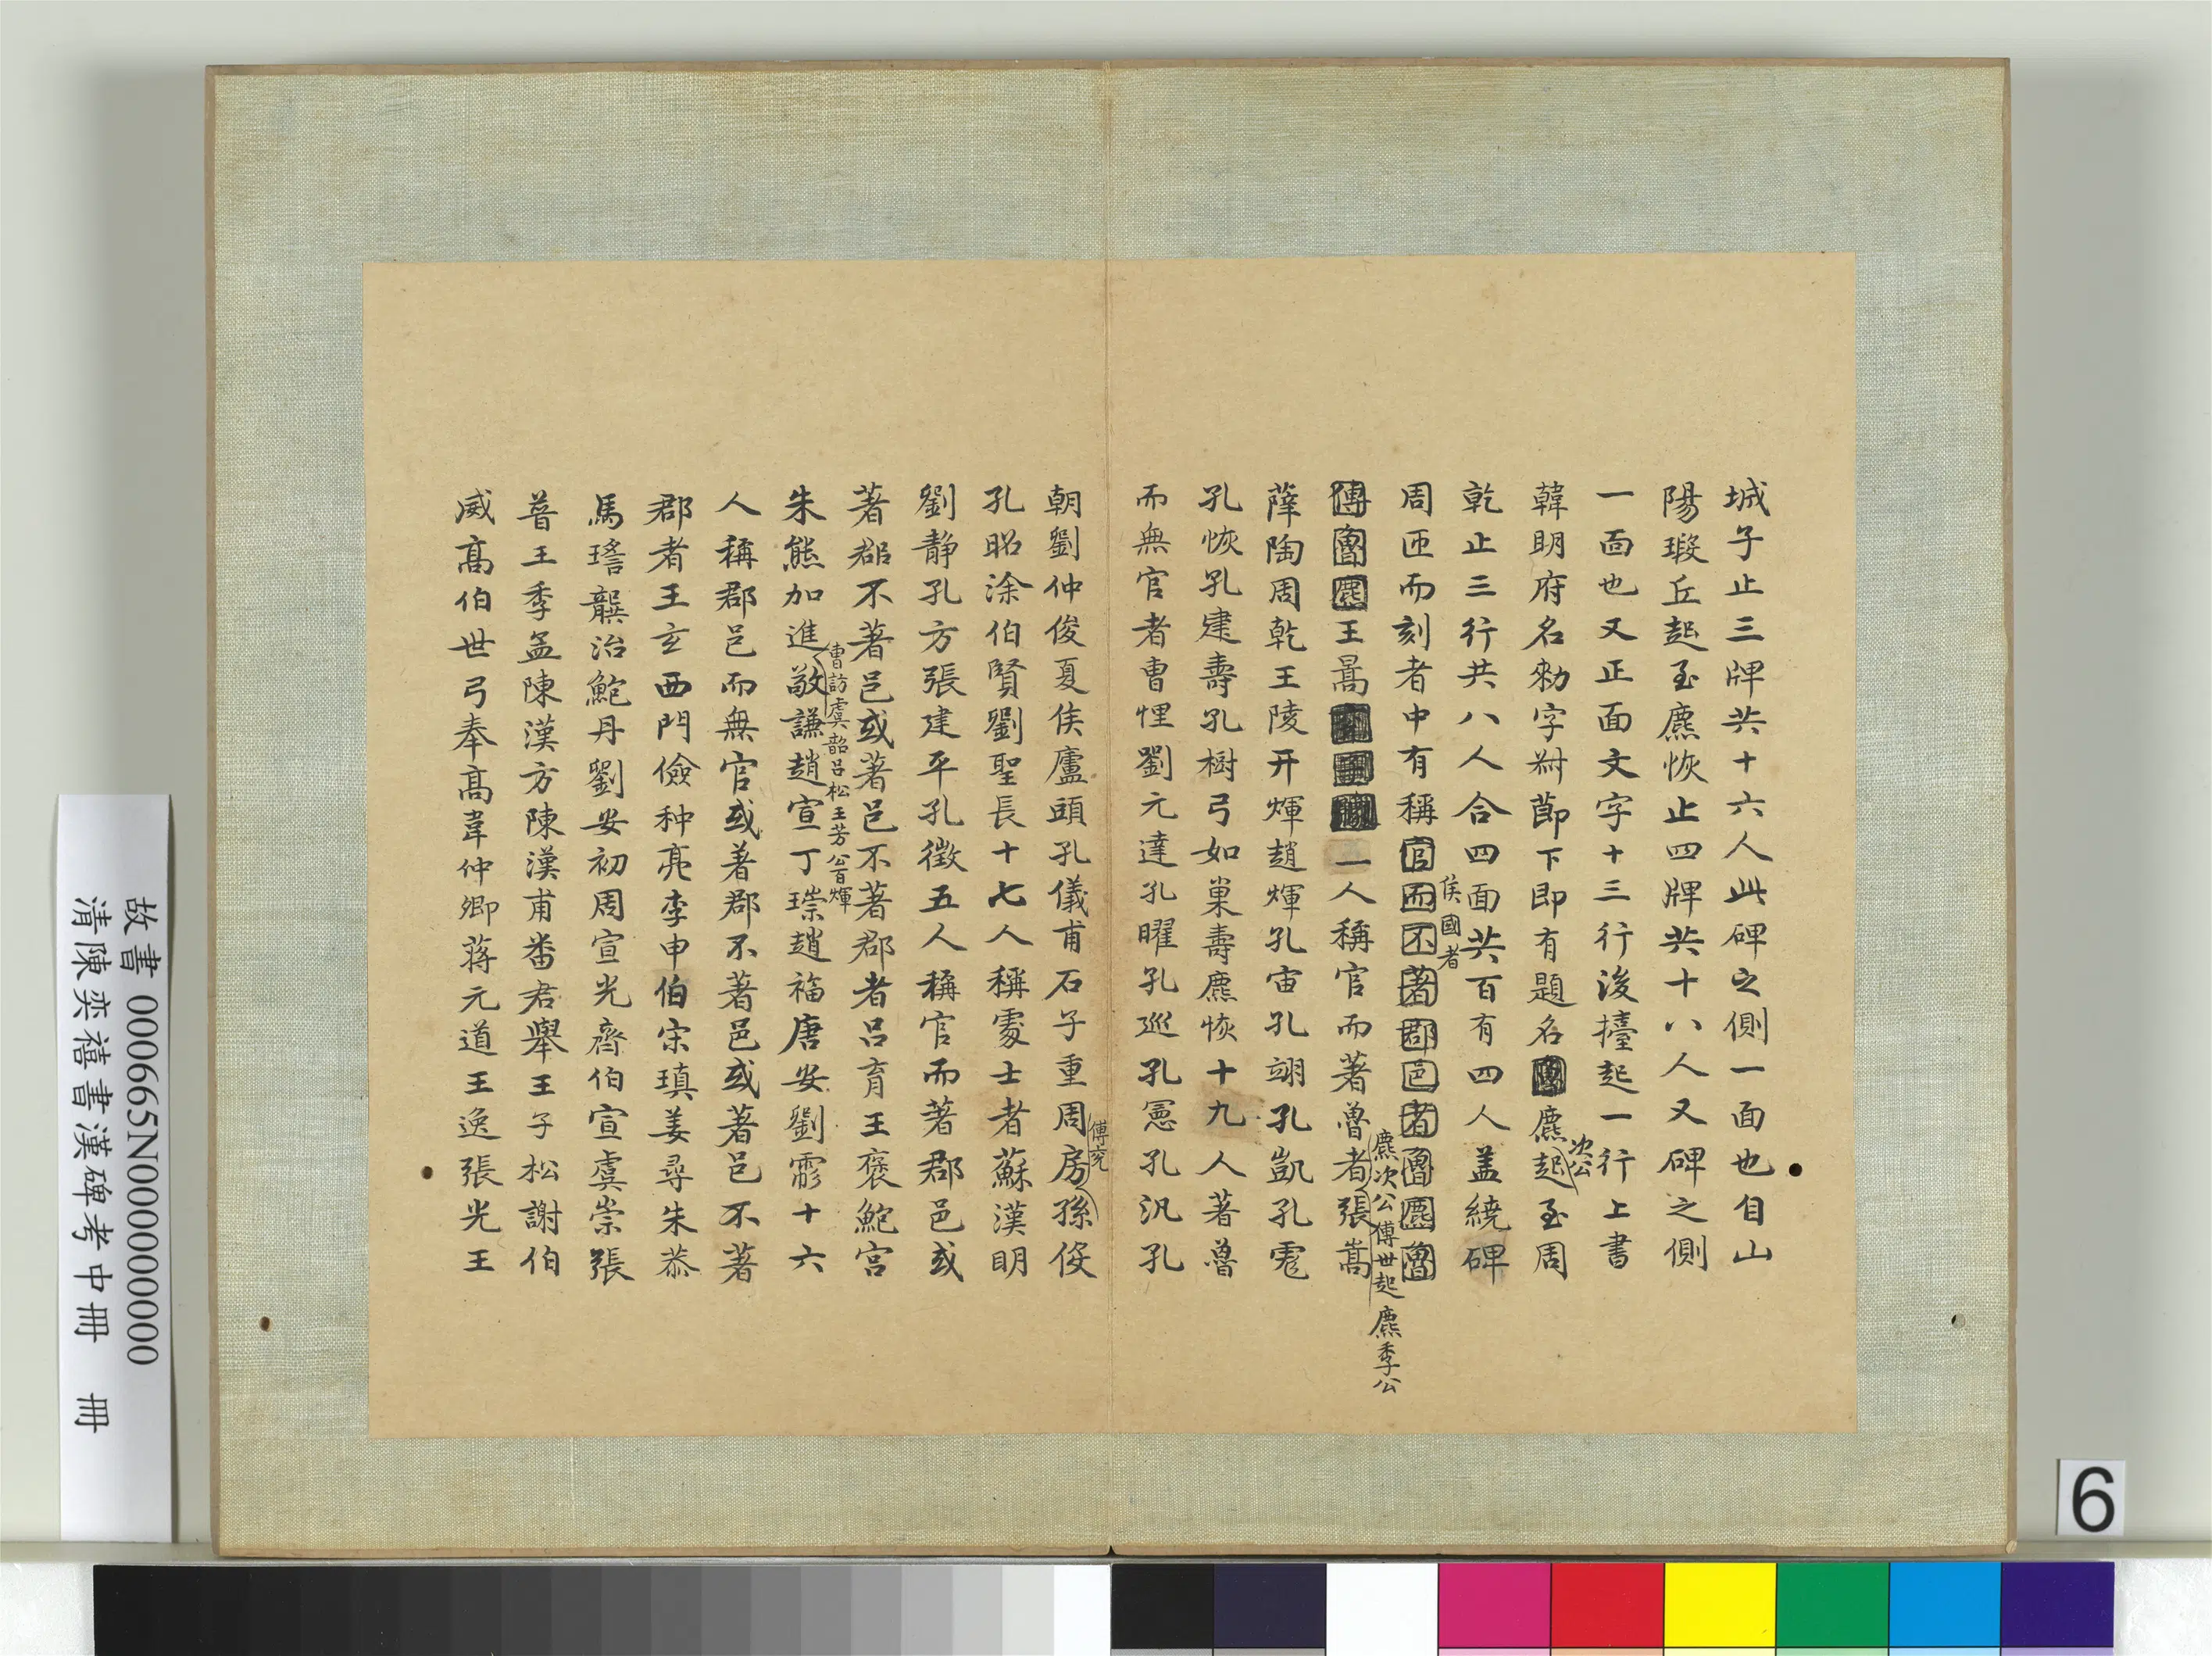 城子止三牌共十六人此碑之側一面也自山
陽瑕丘起至麃恢止四牌共十八人又碑之側
一面也又正面文字十三行後擡起一行上書
韓明府名勑字叔節下即有題名麃次公起至周
乾止三行共八人合四面共百有四人盖繞碑
周匝而刻者中有稱侯國者官而不著郡邑者魯麃魯
傅魯麃王暠一人稱官而著魯者麃次公傅世起麃季公張嵩
薛陶周乾王陵开煇趙煇孔宙孔翊孔凱孔寬
孔恢孔建壽孔樹弓如巢壽麃恢十九人著魯
而無官者曹悝劉元達孔曜孔巡孔憲孔汎孔
朝劉仲俊夏侯廬頭孔儀甫石子重周房傅兖孫俊
孔昭涂伯賢劉聖長十七人稱處士者蘇漢明
劉靜孔方張建平孔徵五人稱官而著郡邑或
著郡不著邑或著邑不著郡者呂育王褒鮑宮
朱熊加進曹訪虞韶呂松王芳公百煇敬謙趙宣丁璪趙福唐安劉彪十六
人稱郡邑而無官或著郡不著邑或著邑不著
郡者王玄西門儉种亮李申伯宋瑱姜尋朱恭
馬瑃龔治鮑丹劉安初周宣光齊伯宣虞崇張
普王季孟陳漢方陳漢甫番君舉王子松謝伯
威高伯世弓奉高韋仲卿蔣元道王逸張光王
故書 000665N000000000
清陳奕禧書漢碑考中冊 冊
6